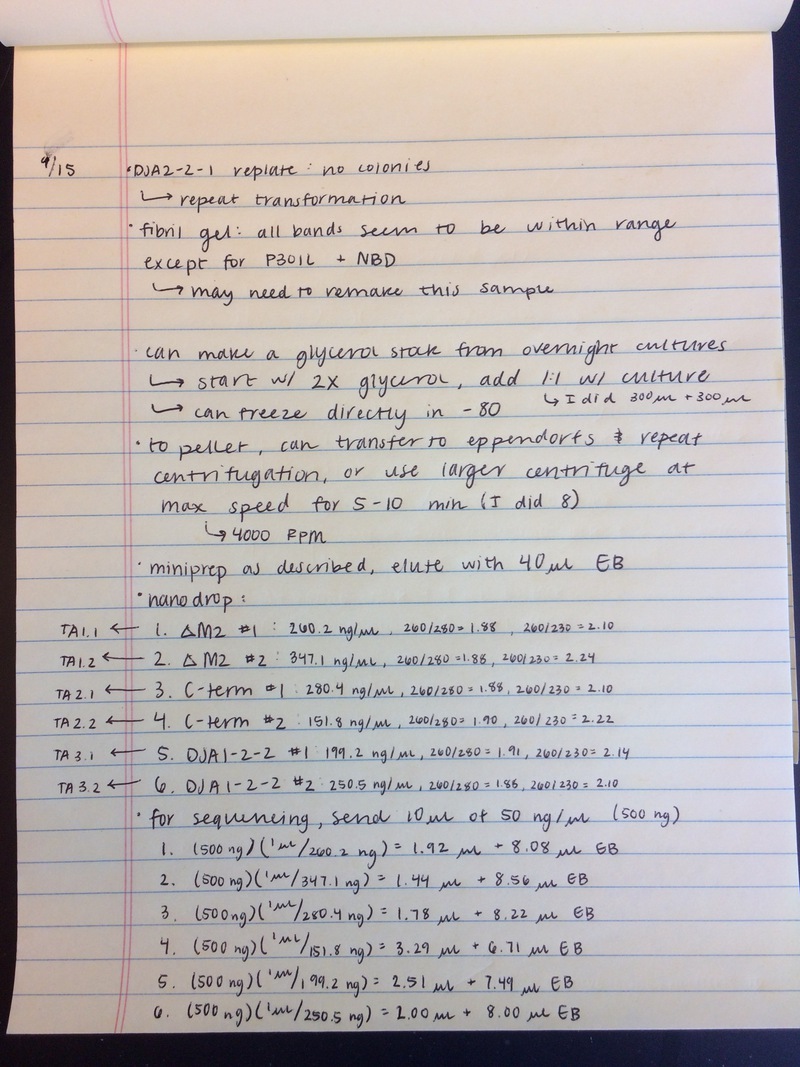 9/15 · DJA2-2-1 replate: no colonies
↳ repeat transformation
· fibril gel: all bands seem to be within range
except for P301L + NBD
↳ may need to remake this sample
· can make a glycerol stock from overnight cultures
↳ start w/ 2X glycerol, add 1:1 w/ culture
↳ can freeze directly in -80 ↳ I did 300 µL + 300 µL
· to pellet, can transfer to eppendorfs & repeat
centrifugation, or use larger centrifuge at
max speed for 5-10 min (I did 8)
↳ 4000 RPM
· miniprep as described, elute with 40 µL EB
· nanodrop:
TA1.1 ← 1. ΔM2 #1 : 260.2 ng/µL, 260/280 = 1.88, 260/230 = 2.10
TA1.2 ← 2. ΔM2 #2 : 347.1 ng/µL, 260/280 = 1.88, 260/230 = 2.24
TA2.1 ← 3. C-term #1 : 280.4 ng/µL, 260/280 = 1.88, 260/230 = 2.10
TA2.2 ← 4. C-term #2 : 151.8 ng/µL, 260/280 = 1.90, 260/230 = 2.22
TA3.1 ← 5. DJA1-2-2 #1 : 199.2 ng/µL, 260/280 = 1.91, 260/230 = 2.14
TA3.2 ← 6. DJA1-2-2 #2 : 250.5 ng/µL, 260/280 = 1.88, 260/230 = 2.10
· for sequencing, send 10 µL of 50 ng/µL (500 ng)
1. (500 ng)(1 µL/260.2 ng) = 1.92 µL + 8.08 µL EB
2. (500 ng)(1 µL/347.1 ng) = 1.44 µL + 8.56 µL EB
3. (500 ng)(1 µL/280.4 ng) = 1.78 µL + 8.22 µL EB
4. (500 ng)(1 µL/151.8 ng) = 3.29 µL + 6.71 µL EB
5. (500 ng)(1 µL/199.2 ng) = 2.51 µL + 7.49 µL EB
6. (500 ng)(1 µL/250.5 ng) = 2.00 µL + 8.00 µL EB